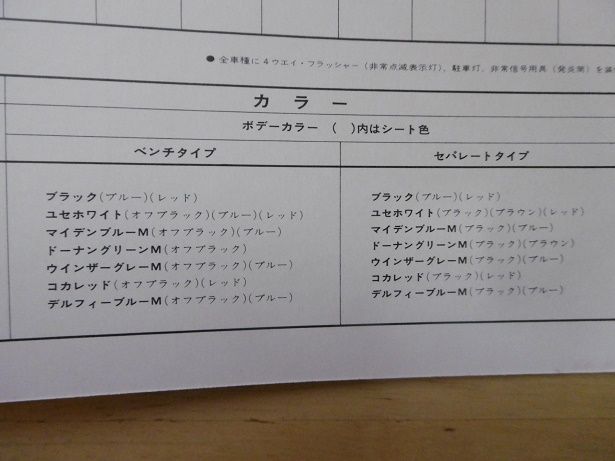 ●全車種に4ウエイ・フラッシャー(非常点滅表示灯)、駐車灯、非常信号用具(発炎筒)を
カラー
ボデーカラー ( )内はシート色
ベンチタイプ
セパレートタイプ
ブラック(ブルー)(レッド)
ユセホワイト(オフブラック)(ブルー)(レッド)
マイデンブルーM(オフブラック)(ブルー)
ドーナングリーンM(オフブラック)
ウインザーグレーM(オフブラック)(ブルー)
コカレッド(オフブラック)(レッド)
デルフィーブルーM(オフブラック)(ブルー)
ブラック(ブルー)(レッド)
ユセホワイト(ブラック)(ブラウン)(レッド)
マイデンブルーM(ブラック)(ブルー)
ドーナングリーンM(ブラック)(ブラウン)
ウインザーグレーM(ブラック)(ブルー)
コカレッド(ブラック)(レッド)
デルフィーブルーM(ブラック)(ブルー)